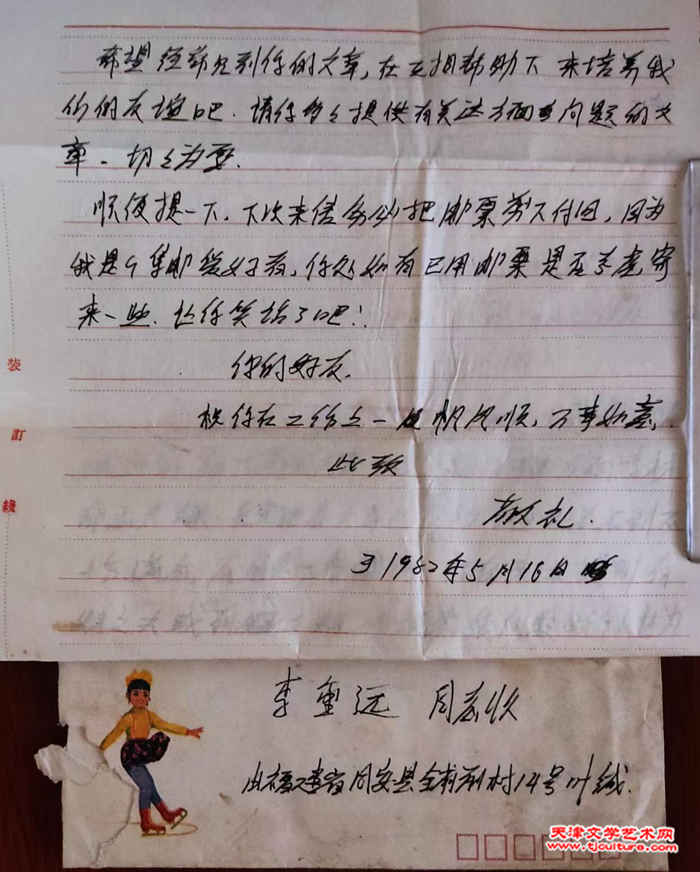 希望经常见到你的文章,在互相帮助下来培养我
们的友谊吧.请你多多提供有关这方面的问题的文
章.切切为要.
顺便提一下,下次来信务必把邮票剪下付回,因为
我是个集邮爱好者,你处如有已用邮票是否考虑寄
来一些.让你笑话了吧!
你的好友.
祝你在工作上一帆风顺,万事如意.
此致
敬礼.
1982年5月16日
装
訂
綫
李 远 同志收
由福建省同安县 村14号叶缄.
天津文学艺术网
www.tjculture.com